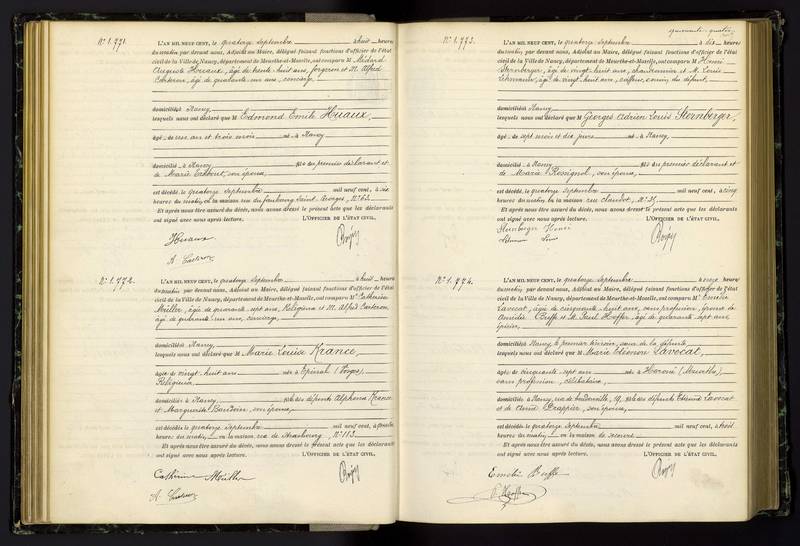 N° 1.771.
L'AN MIL NEUF CENT, le quatorze Septembre à huit heures
du matin par devant nous, Adjoint au Maire, délégué faisant fonctions d'officier de l'état
civil de la Ville de Nancy, département de Meurthe-et-Moselle, ont comparu M Médard
Auguste Huaux, âgé de trente-huit ans, forgeron et M. Alfred
Carteron, âgé de quarante-un ans, concierge
domiciliés à Nancy
lesquels nous ont déclaré que M Edmond Emile Huaux,
âgé de un an et trois mois né à Nancy
domicilié à Nancy fils du premier déclarant et
de Marie son épouse,
est décédé le quatorze Septembre mil neuf cent, à six
heures du matin, en la maison rue du faubourg Saint-Georges, N° 62.
Et après nous être assuré du décès, nous avons dressé le présent acte que les déclarants
ont signé avec nous après lecture. L'OFFICIER DE L'ÉTAT CIVIL,
Huaux
A. Carteron
N° 1.772.
L'AN MIL NEUF CENT, le quatorze Septembre à huit heures
du matin, par devant nous, Adjoint au Maire, délégué faisant fonctions d'officier de l'état
civil de la Ville de Nancy, département de Meurthe-et-Moselle, ont comparu M Catherine
Müller, âgée de quarante-sept ans, Religieuse et M. Alfred Carteron,
âgé de quarante-un ans, concierge
domiciliés à Nancy
lesquels nous ont déclaré que M Marie Louise Krance,
âgée de vingt-huit ans née à Epinal (Vosges),
Religieuse
domiciliée à Nancy fille des défunts Alphonse Krance
et Marguerite Baudoin, son épouse,
est décédée le quatorze Septembre mil neuf cent, à
heures du matin, en la maison, rue de Strasbourg, N° 113
Et après nous être assuré du décès, nous avons dressé le présent acte que les déclarants
ont signé avec nous après lecture. L'OFFICIER DE L'ÉTAT CIVIL,
Catherine Müller
A. Carteron
quarante-quatre
N° 1.773.
L'AN MIL NEUF CENT, le quatorze Septembre à dix heures
du matin par devant nous, Adjoint au Maire, délégué faisant fonctions d'officier de l'état
civil de la Ville de Nancy, département de Meurthe-et-Moselle, ont comparu M Henri
Sternberger, âgé de vingt-huit ans, et M. Louis
Lehmann, âgé de vingt-huit ans, coiffeur, cousin du défunt,
domiciliés à Nancy
lesquels nous ont déclaré que M Georges Adrien Louis Sternberger,
âgé de sept mois et dix jours né à Nancy,
domicilié à Nancy fils du premier déclarant et
de Marie Rossignol, son épouse,
est décédé le quatorze Septembre mil neuf cent, à cinq
heures du matin en la maison rue Claudot, N° 35
Et après nous être assuré du décès, nous avons dressé le présent acte que les déclarants
ont signé avec nous après lecture. L'OFFICIER DE L'ÉTAT CIVIL,
Sternberger Henri
Louis
N° 1.774.
L'AN MIL NEUF CENT, le quatorze Septembre à onze heures
du matin, par devant nous, Adjoint au Maire, délégué faisant fonctions d'officier de l'état
civil de la Ville de Nancy, département de Meurthe-et-Moselle, ont comparu M Emélie
Lavocat, âgée de cinquante-huit ans, sans profession, épouse de
Bieffe et M. Paul Hoffer, âgé de quarante-sept ans
épicier,
domiciliés à Nancy, la première témoin, sœur de la défunte
lesquels nous ont déclaré que M Marie Eléonore Lavocat,
âgée de cinquante-sept ans née à Haroué (Meurthe),
sans profession, célibataire,
domiciliée à Nancy, rue de 19, fille des défunts Etienne Lavocat
et de son épouse,
est décédée le quatorze Septembre mil neuf cent, à trois
heures du matin, en la maison de secours
Et après nous être assuré du décès, nous avons dressé le présent acte que les déclarants
ont signé avec nous après lecture. L'OFFICIER DE L'ÉTAT CIVIL,
Emélie Bieffe
P. Hoffer